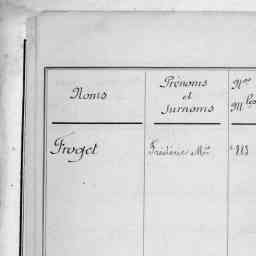 Noms
Prénoms
et
Surnoms
Nos
Mles
Froget
Frédéric Mie
813